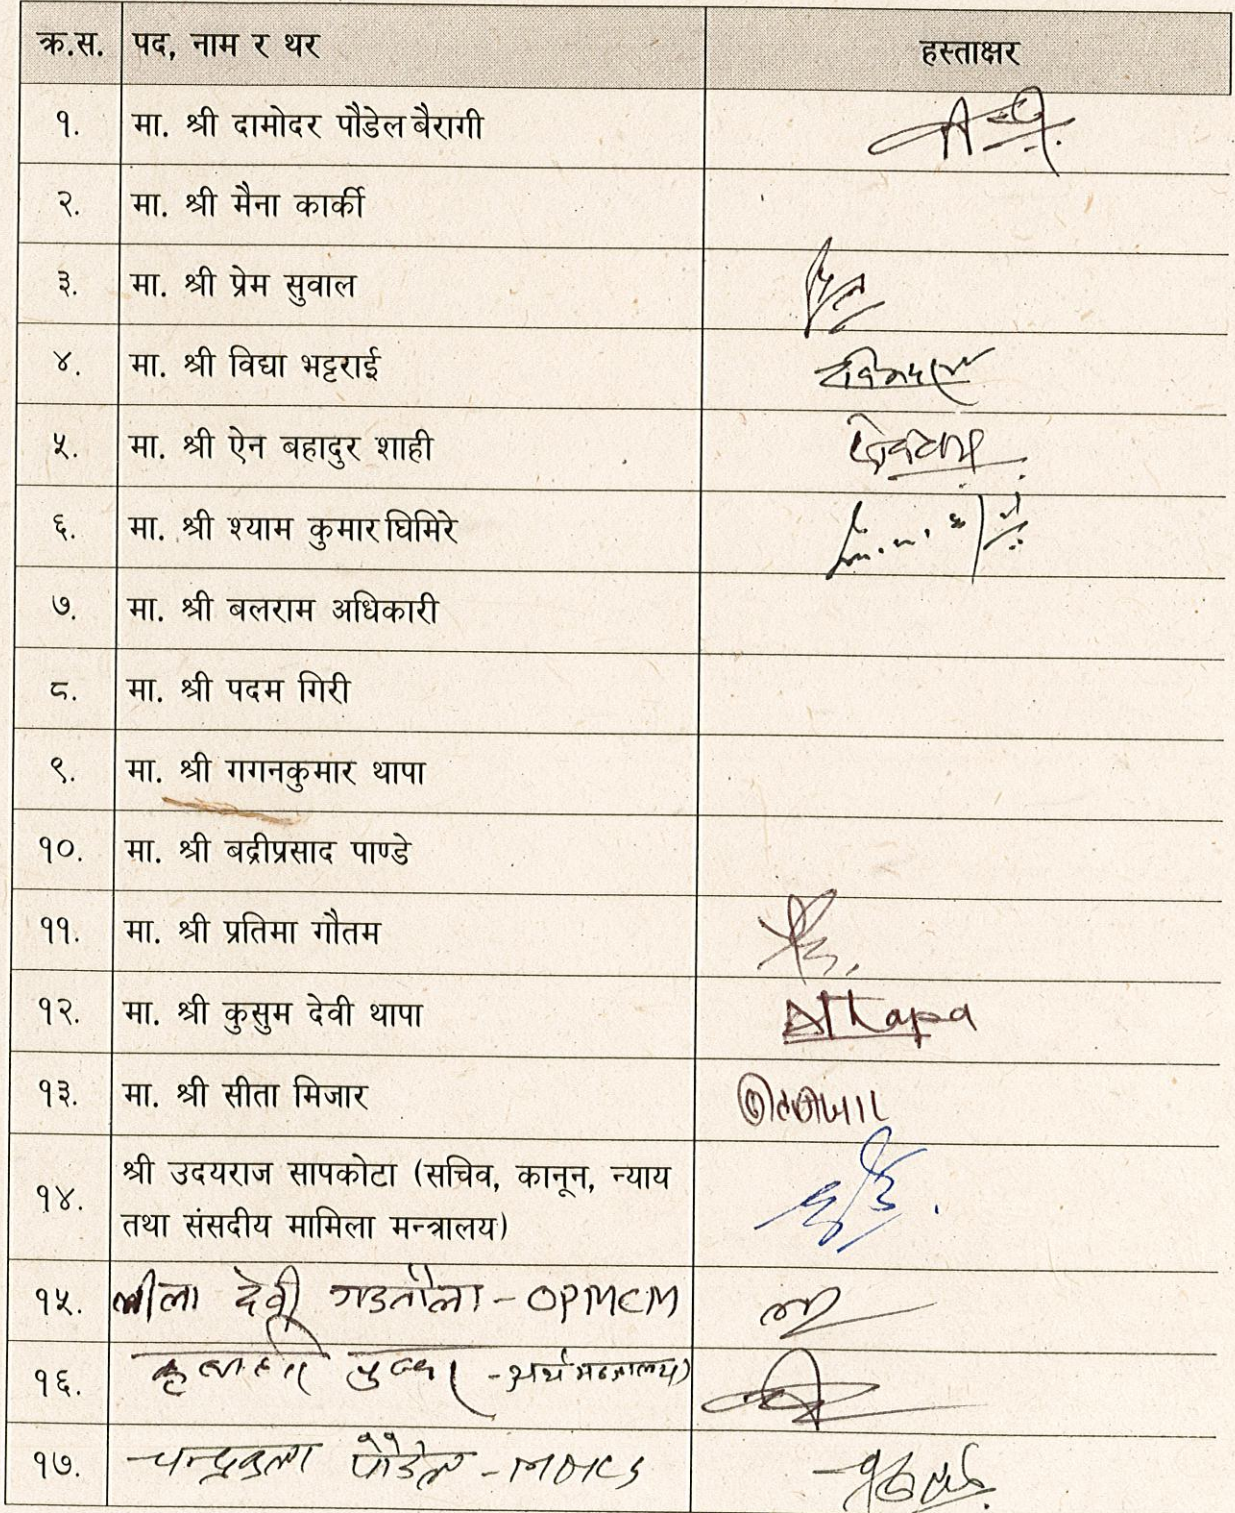 क्र.स. पद, नाम र थर हस्ताक्षर
१. मा. श्री दामोदर पौडेल बैरागी
२. मा. श्री मैना कार्की
३. मा. श्री प्रेम सुवाल
४. मा. श्री विद्या भट्टराई
५. मा. श्री ऐन बहादुर शाही
६. मा. श्री श्याम कुमार घिमिरे
७. मा. श्री बलराम अधिकारी
८. मा. श्री पदम गिरी
९. मा. श्री गगनकुमार थापा
१०. मा. श्री बद्रीप्रसाद पाण्डे
११. मा. श्री प्रतिमा गौतम
१२. मा. श्री कुसुम देवी थापा Thapa
१३. मा. श्री सीता मिजार
१४. श्री उदयराज सापकोटा (सचिव, कानून, न्याय
तथा संसदीय मामिला मन्त्रालय)
१५. लीला देवी गडतौला - OPMCM
१६. - अर्थ मन्त्रालय)
१७. चन्द्रकला पौडेल -